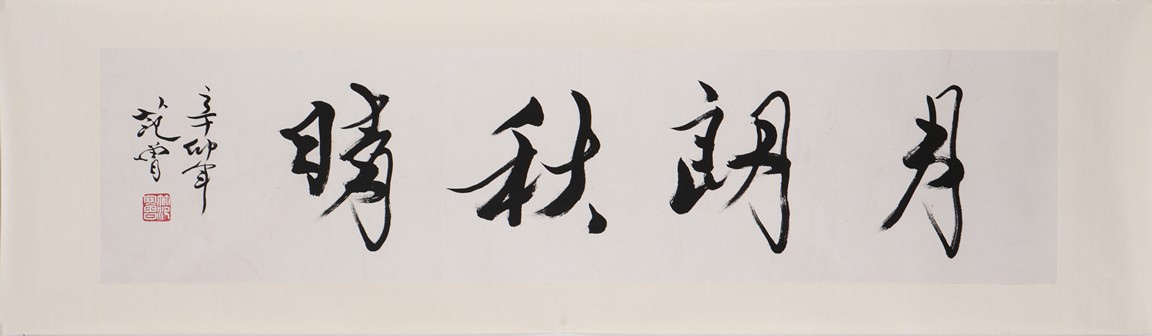 月朗秋晴
辛卯年
范曾